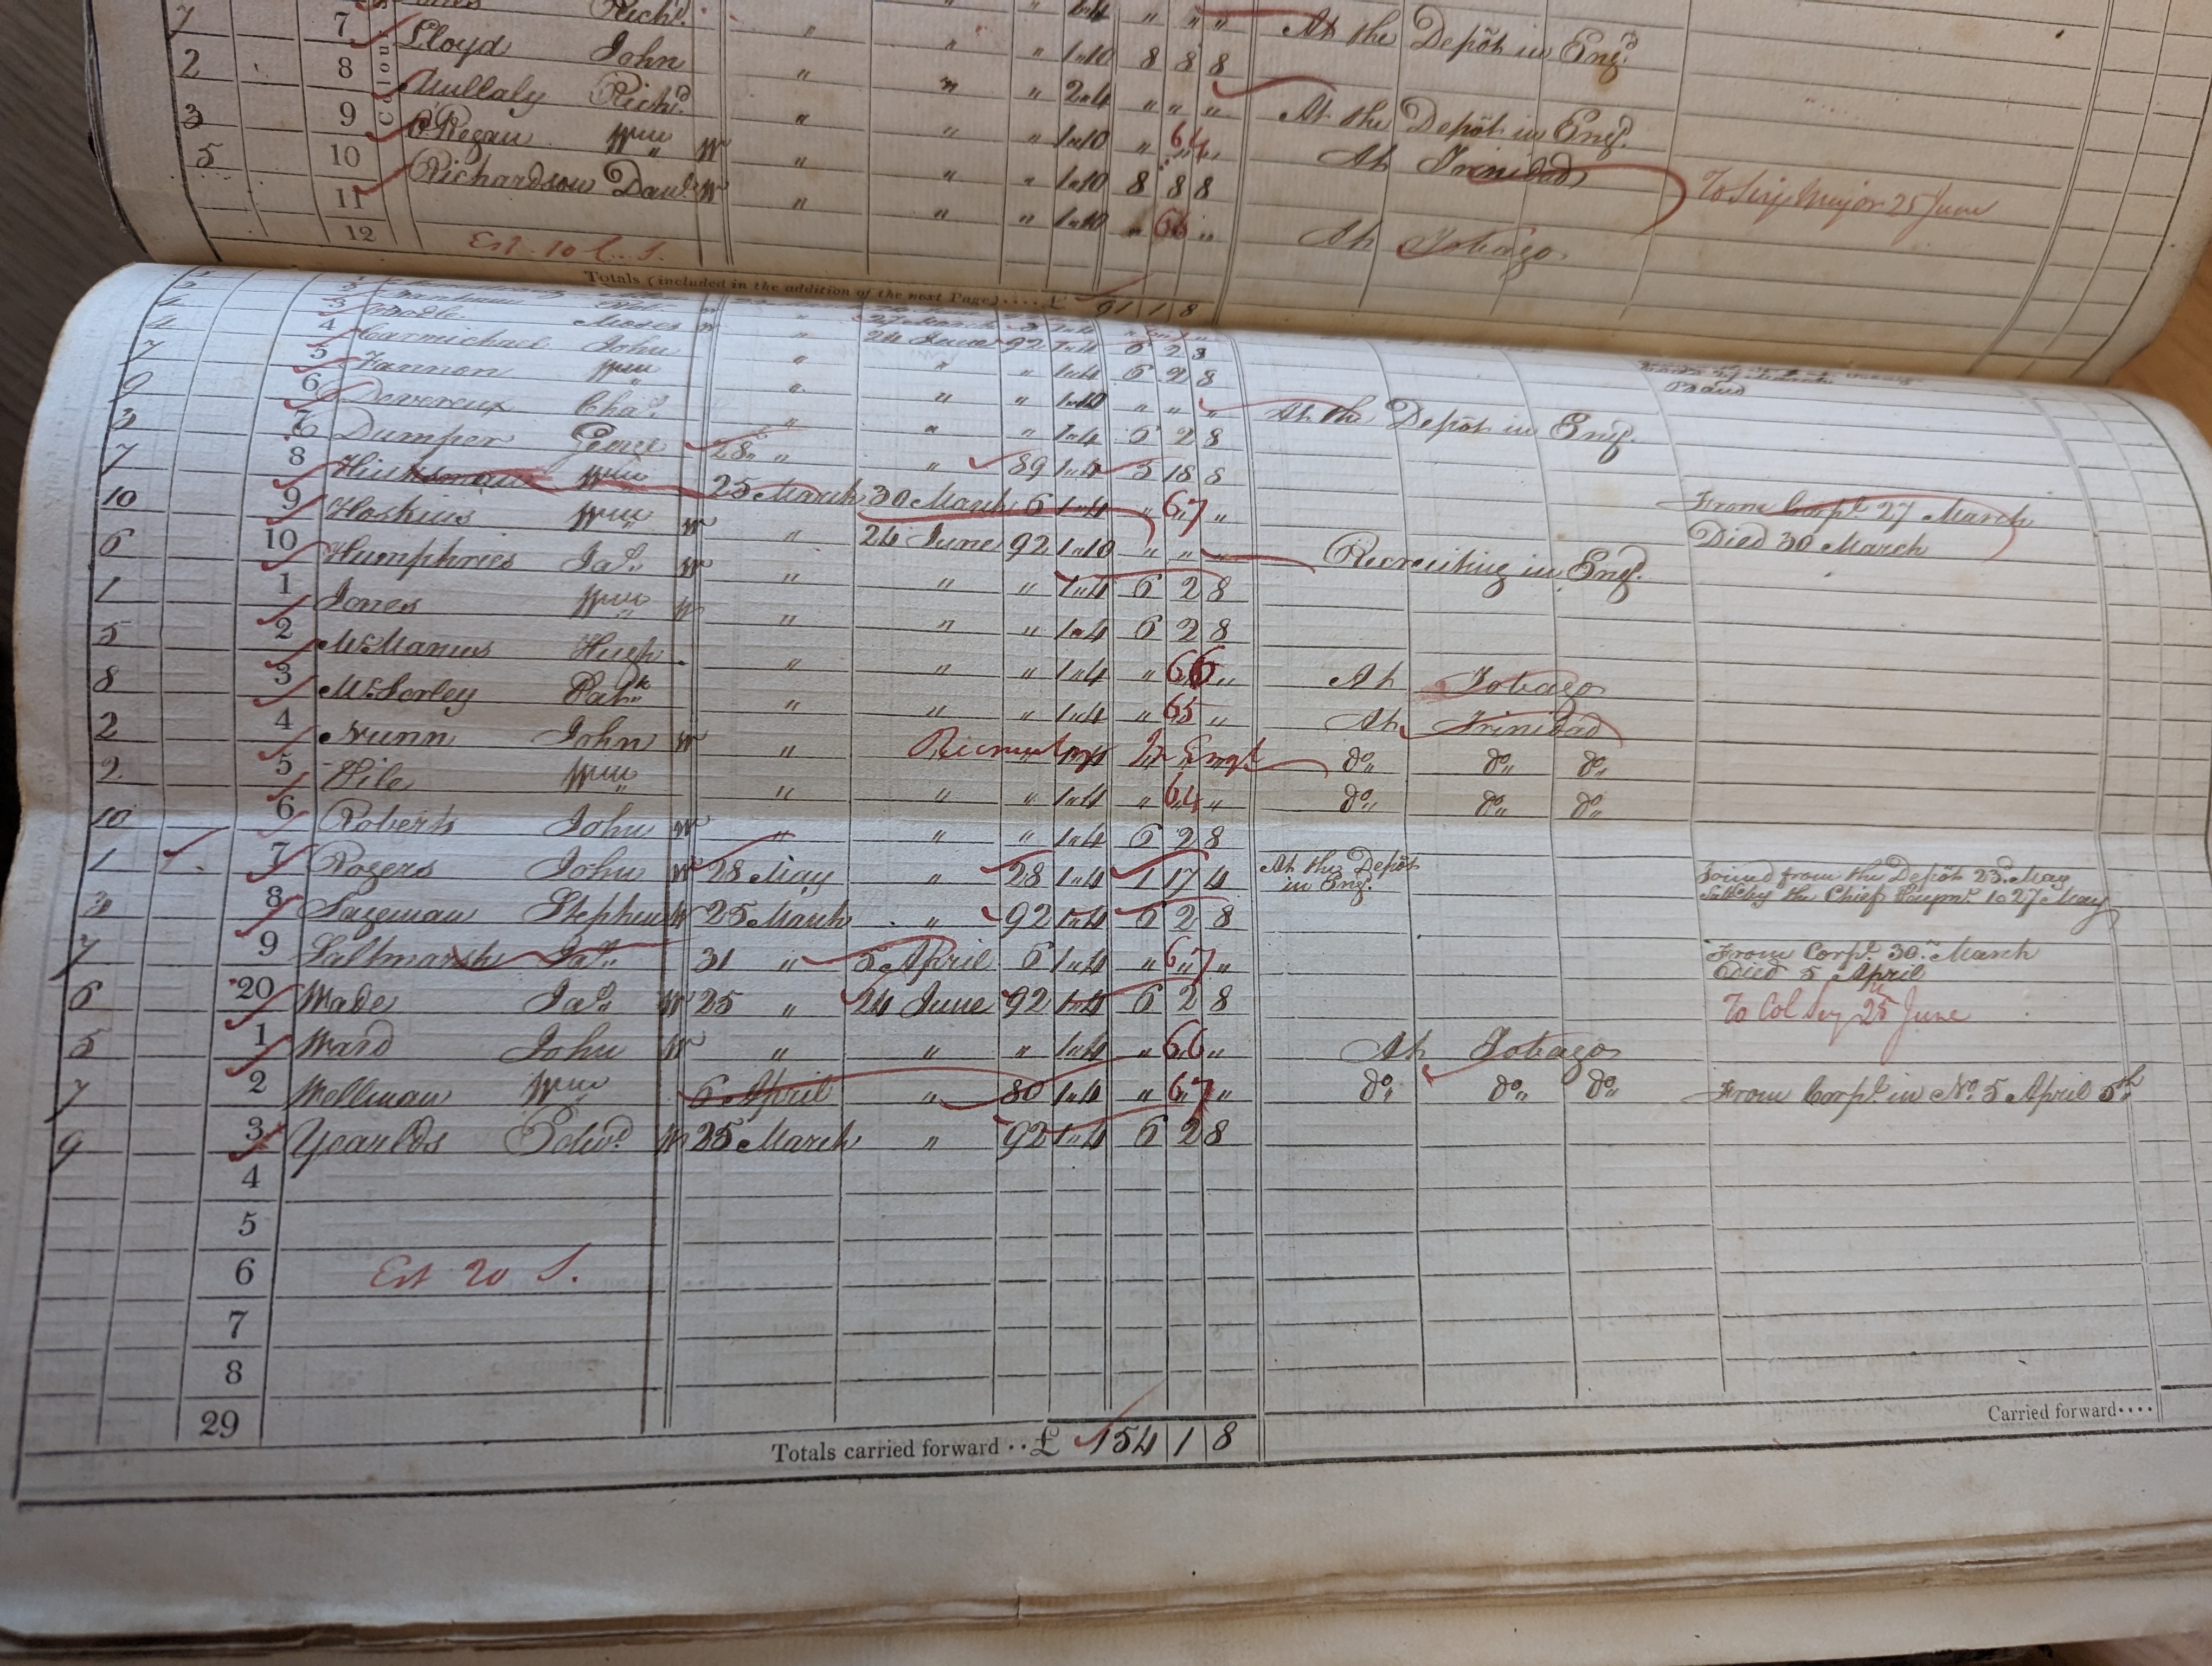 7 7 Lloyd John " " " 1〃10 8 8 8 At the Depôt in Eng.d
2 8 Mullaly Rich.d " " " 2〃4 " " "
3 9 O'Regan Wm W " " " 1〃10 " 64 " At the Depôt in Eng.d
5 10 Richardson Danl. W " " " 1〃10 8 8 8 At Trinidad To Serj Major 25 June
11 " " " 1〃10 " 66 " At Tobago
12 Est. 10 C. S.
Totals (included in the addition of the next Page).... £ 91 1 8
4 4 Carmichael John " 24 June 92 1〃4 6 2 8
7 5 Fannon Wm " " " 1〃4 6 2 8 Band
9 6 Devereux Cha.s " " " 1〃10 " " " At the Depôt in Eng.d
3 7 Dumper George " " " 1〃4 6 2 8
7 8 Wm 28 " " 89 1〃4 5 18 8
10 9 Hoskins Wm W 25 March 30 March 6 1〃4 " 67 " From Corpl. 27 March
Died 30 March
6 10 Humphries Ja.s W " 24 June 92 1〃10 " " " Recruiting in Eng.d
1 1 Jones Wm W " " " 1〃4 6 2 8
5 2 McManus Hugh " " " 1〃4 6 2 8
8 3 McSorley Patk " " " 1〃4 " 66 " At Tobago
2 4 Nunn John W " " " 1〃4 " 65 " At Trinidad
2 5 Pile Wm " Recruiting In Engd do do do
10 6 Roberts John W " " " 1〃4 " 64 " do do do
" " " 1〃4 6 2 8
1 1 7 Rogers John W 28 May " 28 1〃4 1 17 4 At the Depôt in Eng.d Joined from the Depôt 23.d May
by the Chief Paymr. to 27 May
3 8 Sageman Stephen W 25 March " 92 1〃4 6 2 8
7 9 Saltmarsh Ja.s 31 " 5 April 6 1〃4 " 67 " From Corpl. 30. March
Died 5 April
6 20 Wade Ja.s W 25 " 24 June 92 1〃4 6 2 8 To Col Serj 25 June
5 1 Ward John W " " " 1〃4 " 66 " At Tobago
7 2 Wellman Wm 6 April " 80 1〃4 " 67 " do do do From Corpl. in No. 5 April 5th
9 3 Yearlds Edwd. W 25 March " 92 1〃4 6 2 8
4
5
6 Est 20 S.
7
8
29
Carried forward....
Totals carried forward .. £ 154 1 8